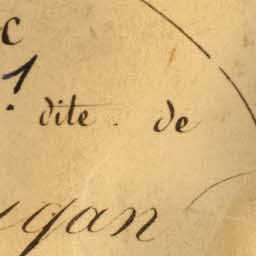 c
1.
dite. de
gan